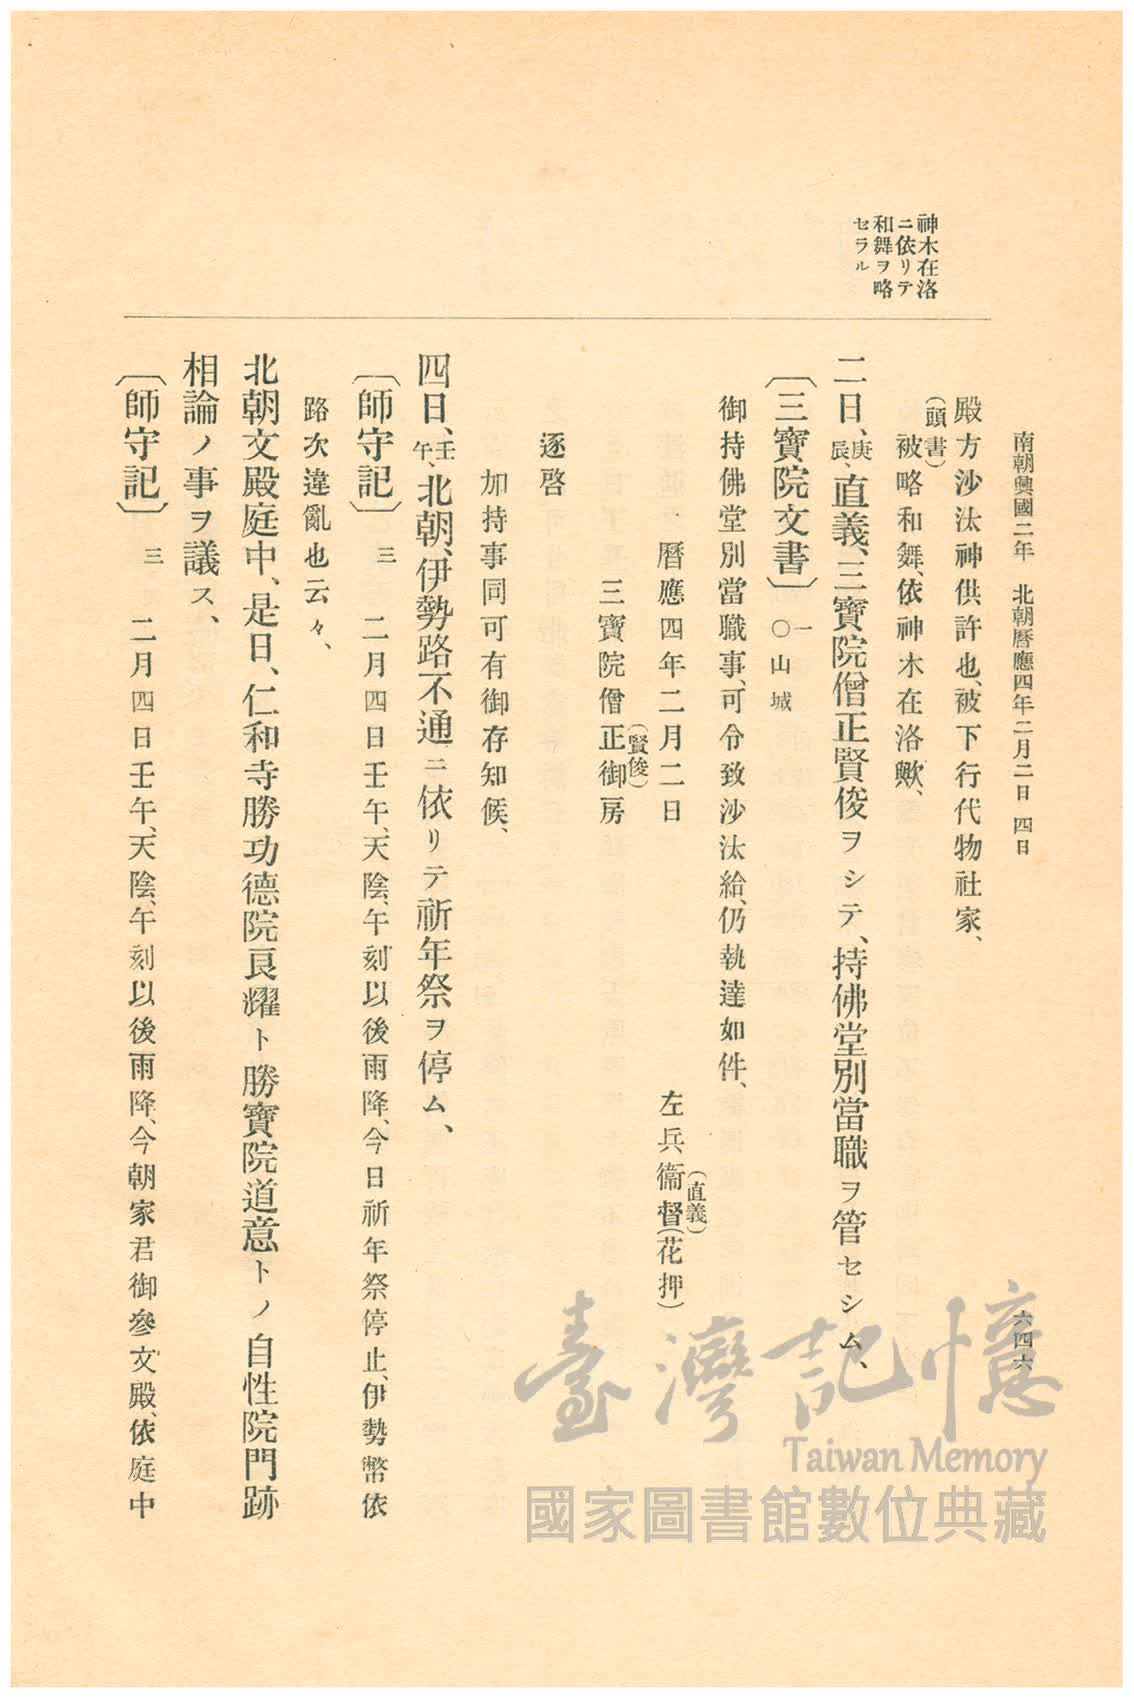 南朝興國二年　北朝曆應四年二月二日　四日
六四六
神木在洛
ニ依リテ
和舞ヲ略
セラル
殿方沙汰神供許也、被下行代物社家、
(頭書)
被略和舞、依神木在洛歟、
二日、庚辰、直義、三寶院僧正賢俊ヲシテ、持佛堂別當職ヲ管セシム、
〔三寶院文書〕一〇山城
御持佛堂別當職事、可令致沙汰給、仍執達如件、
曆應四年二月二日　左兵衞督(花押)
(直義)
三寶院僧正御房
(賢俊)
逐啓
加持事同可有御存知候、
四日、壬午、北朝、伊勢路不通ニ依リテ祈年祭ヲ停ム、
〔師守記〕三　二月四日壬午、天陰、午刻以後雨降、今日祈年祭停止、伊勢幣依
路次違亂也云々、
北朝文殿庭中、是日、仁和寺勝功德院良耀ト勝寶院道意トノ自性院門跡
相論ノ事ヲ議ス、
〔師守記〕三　二月四日壬午、天陰、午刻以後雨降、今朝家君御參文殿、依庭中
臺灣記憶
Taiwan Memory
國家圖書館數位典藏